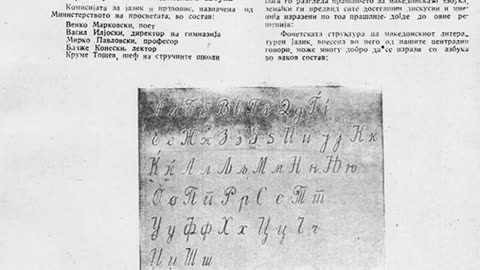 Комисијата за јазик и правопис, назначена од
Министерството на просветата, во состав:
Венко Марковски, поет
Васил Иљоски, директор на гимназија
Мирко Павловски, професор
Блаже Конески, лектор
Круме Тошев, шеф на стручните школи
го разгледа прашањето за македонската азбука,
земајќи ги предвид сите досегашни дискусии и
изразени по тоа прашање, дојде до овие
решенија:
Фонетската структура на македонскиот литера-
турен јазик, внесена во него од нашите централни
говори, може многу добро да се изрази со азбука
во ваков состав:
А а Б б В в Г г Д д Ѓ ѓ
е Ж ж З з Ѕ ѕ И и ј К к
Ќ ќ Л л Љ љ М м Н н Њ њ
О о П п Р р С с Т т
У у Ф ф Х х Ц ц Ч ч
Џ џ Ш ш